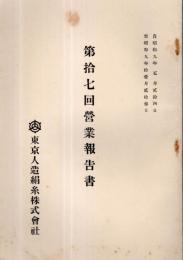 自昭和九年五月貳拾四日
至昭和九年拾壹月貳拾參日
第拾七回營業報告書
東京人造絹糸株式會社